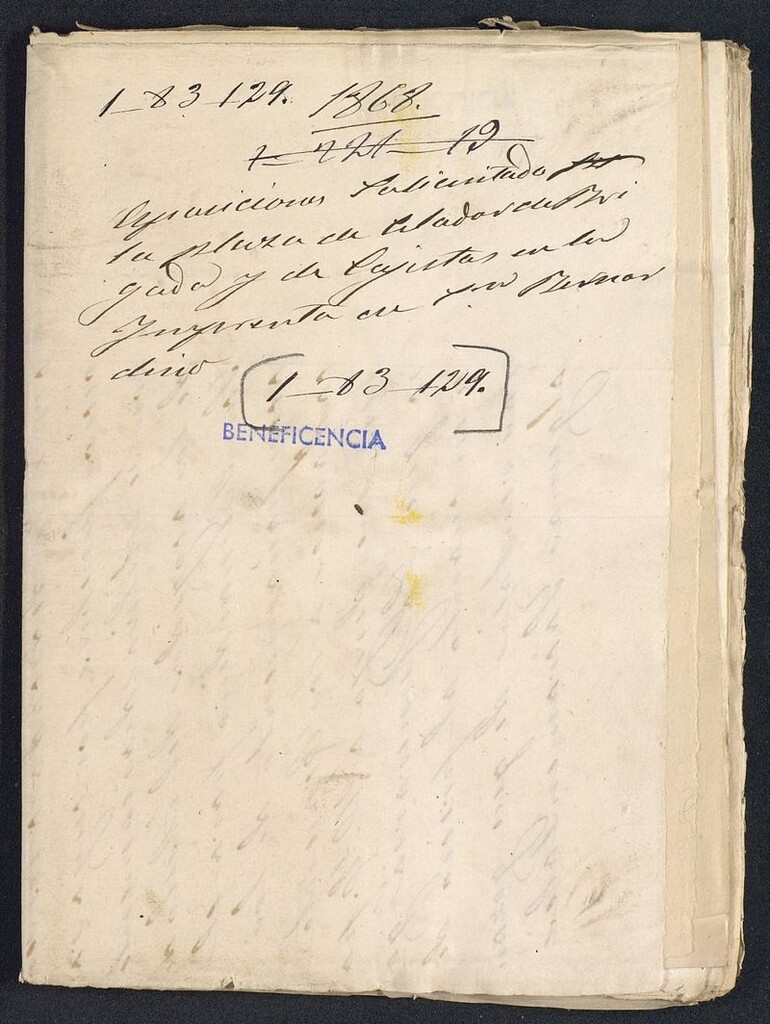 1-83-129. 1868.
1-221-19
Esposiciones Solicitado
la plaza de Celador de Bri
gada y de Cajistas en la
Imprenta de San Bernar
dino
1-83-129.
BENEFICENCIA